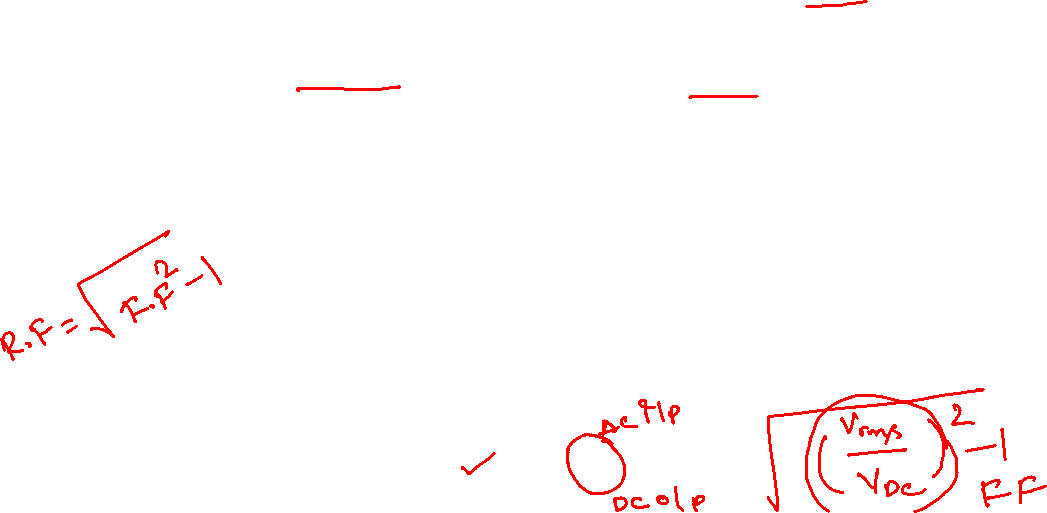 R.F = √F.F² - 1
AC i/p
DC o/p
√(Vrms/VDC)² - 1
FF